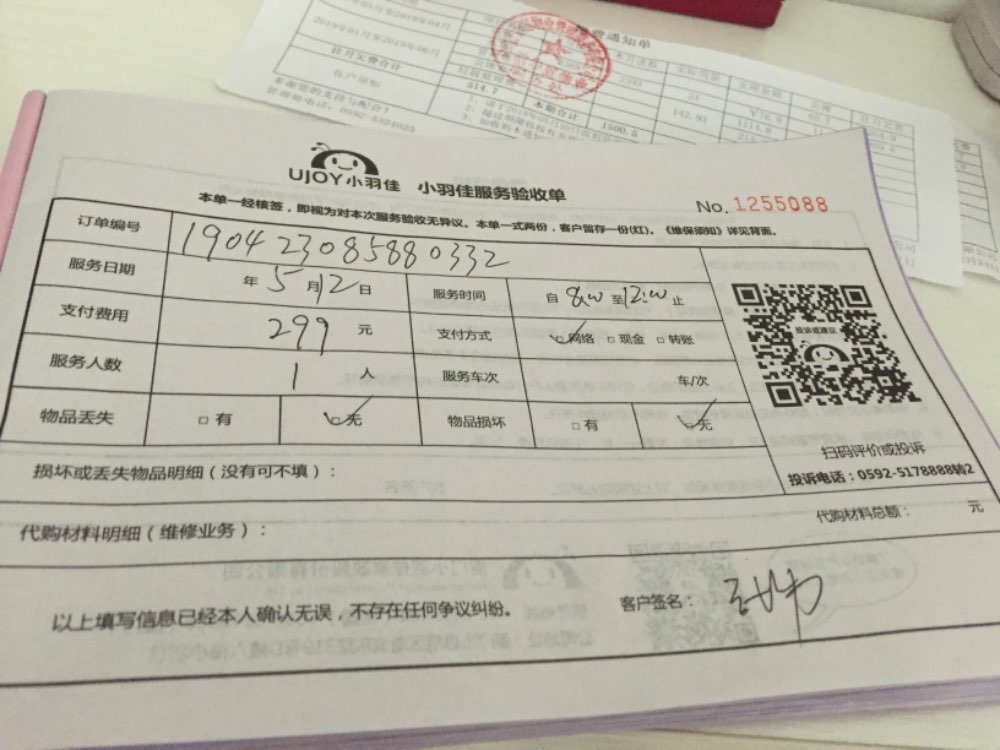 费通知单
2019年01月至2019年06月
往月欠费合计
住户须知
514.7
本期合计
1500.5
142.93
24
¥76.8
1114.8
实际用量
实用金额
往月欠费
多谢您的支持与配合!
管理处电话:0592-5324025
UJOY小羽佳 小羽佳服务验收单
No. 1255088
本单一经核签,即视为对本次服务验收无异议。本单一式两份,客户留存一份(红)。《维保须知》详见背面。
订单编号 19042308588 0332
服务日期 年5月12日 服务时间 自8:00至12:00止
支付费用 299元 支付方式 网络 现金 转账
投诉或建议
服务人数 1人 服务车次 车/次
物品丢失 有 无 物品损坏 有 无
扫码评价或投诉
投诉电话:0592-5178888转2
损坏或丢失物品明细(没有可不填):
代购材料明细(维修业务): 代购材料总额: 元
以上填写信息已经本人确认无误,不存在任何争议纠纷。 客户签名: